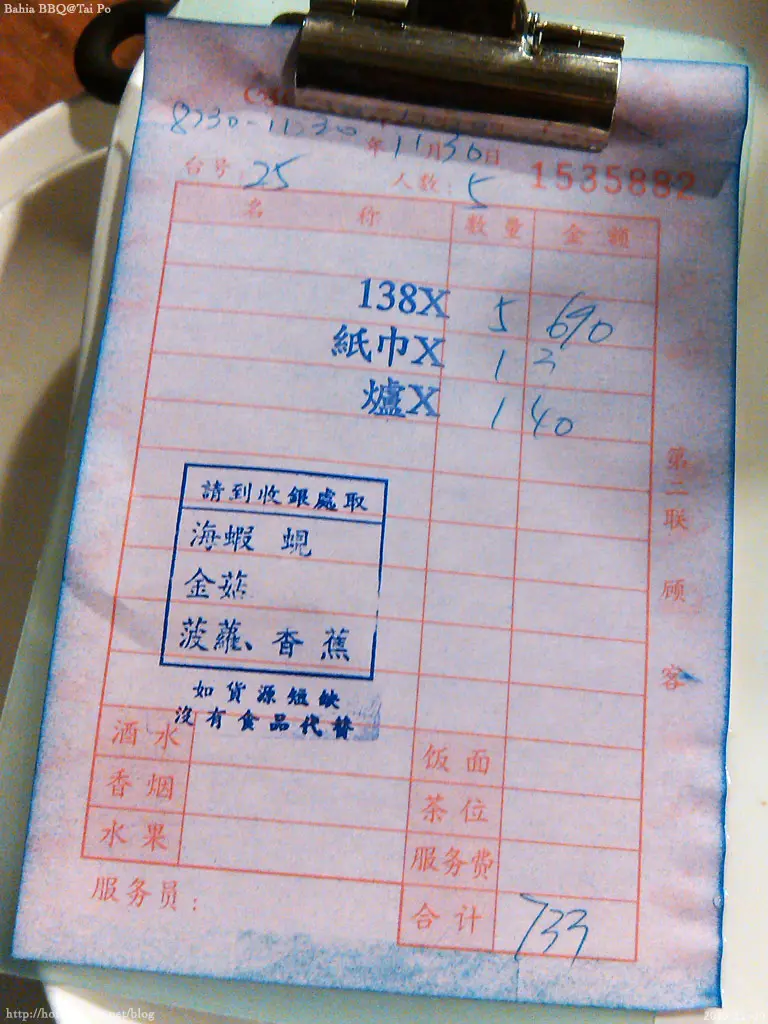 Bahia BBQ@Tai Po
8:30-11:30
年11月30日
台号: 25 人数: 5 1535882
名 称 数量 金额
138X 5 690
紙巾X 1 3
爐X 1 40
請到收銀處取
海蝦 蜆
金菇
菠蘿、香蕉
如貨源短缺
沒有食品代替
第二联 顾 客
酒水 饭面
香烟 茶位
水果 服务费
服务员: 合计 733